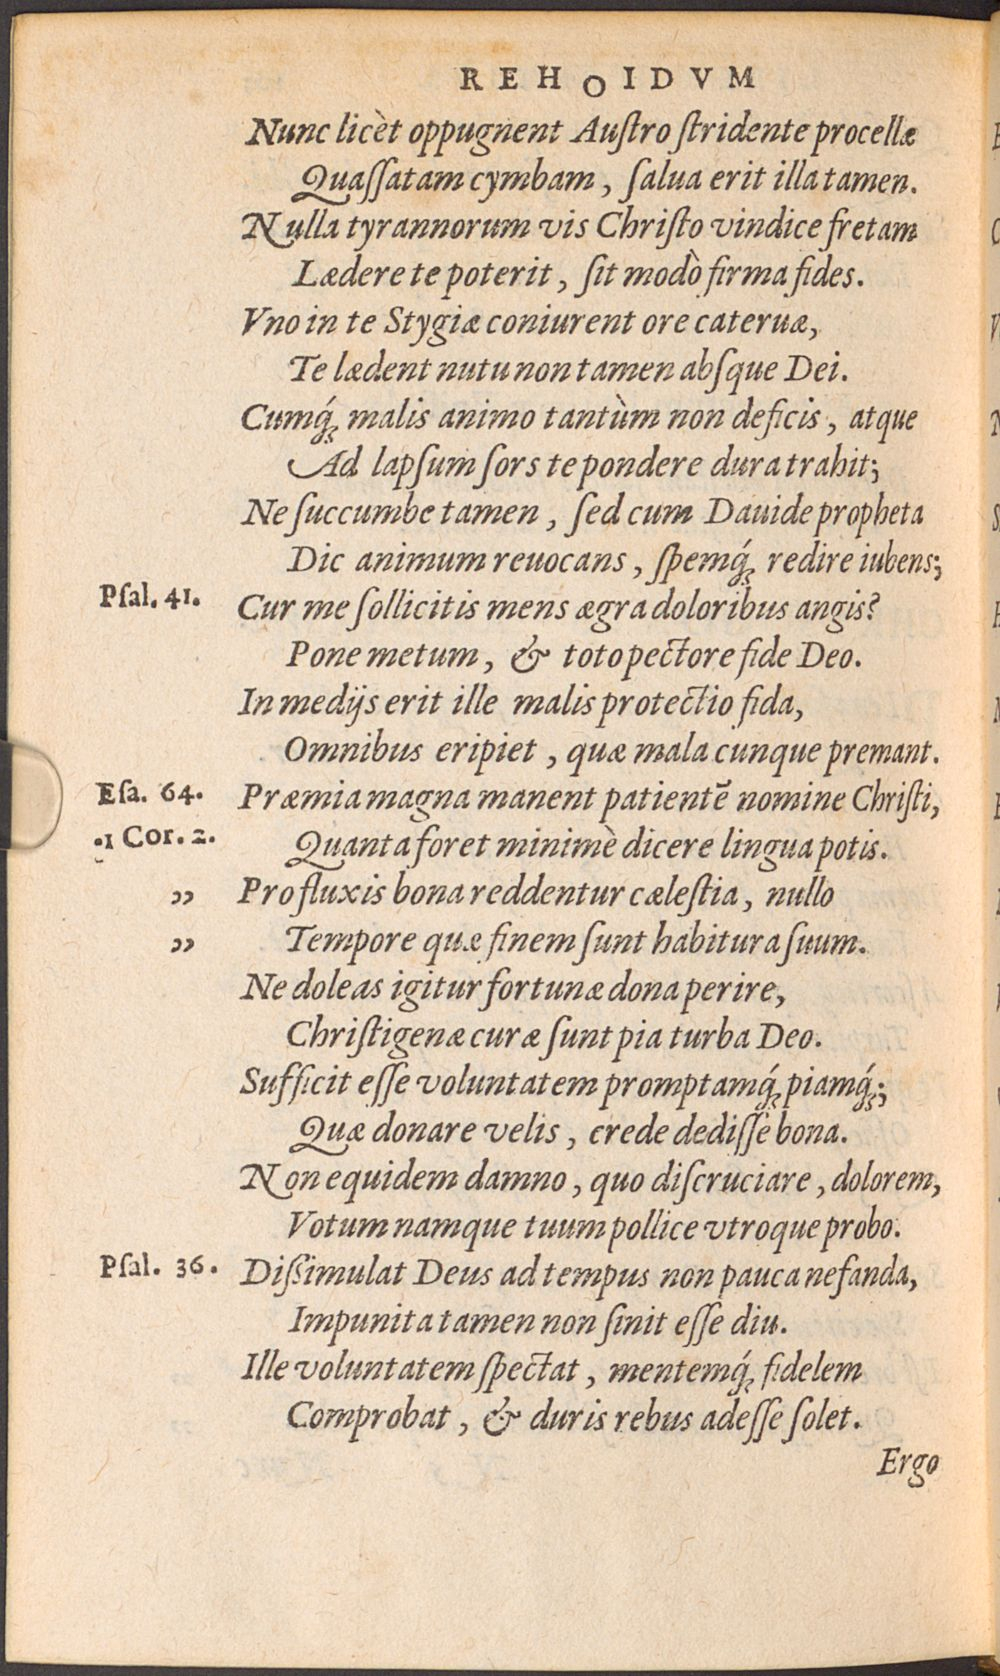 REHOIDVM
Nunc licèt oppugnent Auſtro ſtridente procellæ
Quaſſatam cymbam, ſalua erit illa tamen.
Nulla tyrannorum vis Chriſto vindice fretam
Lædere te poterit, ſit modò firma fides.
Vno in te Stygiæ coniurent ore cateruæ,
Te lædent nutu non tamen abſque Dei.
Cumq́; malis animo tantùm non deficis, atque
Ad lapſum ſors te pondere dura trahit;
Ne ſuccumbe tamen, ſed cum Dauide propheta
Dic animum reuocans, ſpemq́; redire iubens;
Pſal. 41. Cur me ſollicitis mens ægra doloribus angis?
Pone metum, & toto pectore fide Deo.
In medijs erit ille malis protectio fida,
Omnibus eripiet, quæ mala cunque premant.
Eſa. 64. Præmia magna manent patientē nomine Chriſti,
.1 Cor. 2. Quanta foret minimè dicere lingua potis.
„ Pro fluxis bona reddentur cæleſtia, nullo
„ Tempore quæ finem ſunt habitura ſuum.
Ne doleas igitur fortunæ dona perire,
Chriſtigenæ curæ ſunt pia turba Deo.
Sufficit eſſe voluntatem promptamq́; piamq́;;
Quæ donare velis, crede dediſſe bona.
Non equidem damno, quo diſcruciare, dolorem,
Votum namque tuum pollice vtroque probo.
Pſal. 36. Diſsimulat Deus ad tempus non pauca nefanda,
Impunita tamen non ſinit eſſe diu.
Ille voluntatem ſpectat, mentemq́; fidelem
Comprobat, & duris rebus adeſſe ſolet.
Ergo